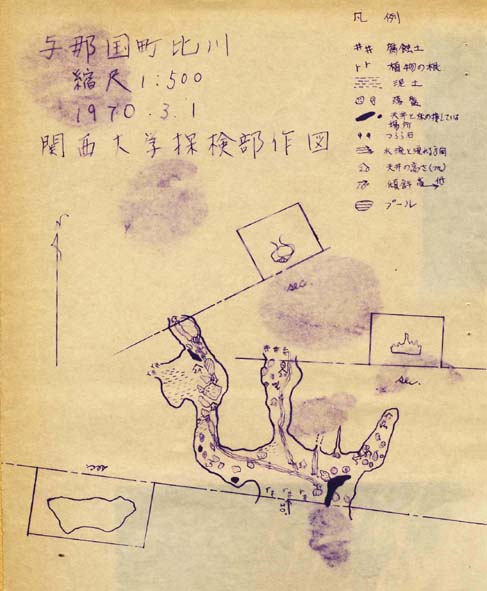 与那国町比川
縮尺1:500
1970.3.1
関西大学探検部作図
凡例
腐蝕土
植物の根
泥土
落盤
天井と床の接している
場所
つらら石
水流と流れる方向
天井の高さ(m)
傾斜 高 低
プール
N
sec.
sec.
sec.